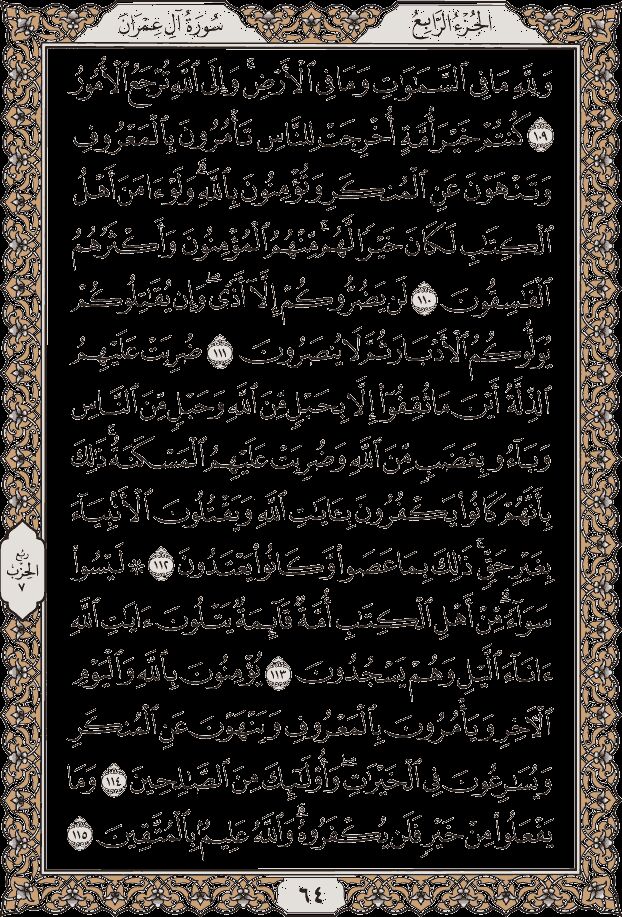 الجُزْءُ الرَّابِعُ
سُورَةُ آلِ عِمْرَانَ
وَلِلَّهِ مَا فِي ٱلسَّمَٰوَٰتِ وَمَا فِي ٱلْأَرْضِۚ وَإِلَى ٱللَّهِ تُرْجَعُ ٱلْأُمُورُ
١٠٩ كُنتُمْ خَيْرَ أُمَّةٍ أُخْرِجَتْ لِلنَّاسِ تَأْمُرُونَ بِٱلْمَعْرُوفِ
وَتَنْهَوْنَ عَنِ ٱلْمُنكَرِ وَتُؤْمِنُونَ بِٱللَّهِۗ وَلَوْ ءَامَنَ أَهْلُ
ٱلْكِتَٰبِ لَكَانَ خَيْرًا لَّهُمۚ مِّنْهُمُ ٱلْمُؤْمِنُونَ وَأَكْثَرُهُمُ
ٱلْفَٰسِقُونَ ١١٠ لَن يَضُرُّوكُمْ إِلَّآ أَذًىۖ وَإِن يُقَٰتِلُوكُمْ
يُوَلُّوكُمُ ٱلْأَدْبَارَ ثُمَّ لَا يُنصَرُونَ ١١١ ضُرِبَتْ عَلَيْهِمُ
ٱلذِّلَّةُ أَيْنَ مَا ثُقِفُوٓا۟ إِلَّا بِحَبْلٍ مِّنَ ٱللَّهِ وَحَبْلٍ مِّنَ ٱلنَّاسِ
وَبَآءُو بِغَضَبٍ مِّنَ ٱللَّهِ وَضُرِبَتْ عَلَيْهِمُ ٱلْمَسْكَنَةُۚ ذَٰلِكَ
بِأَنَّهُمْ كَانُوا۟ يَكْفُرُونَ بِـَٔايَٰتِ ٱللَّهِ وَيَقْتُلُونَ ٱلْأَنۢبِيَآءَ
بِغَيْرِ حَقٍّۚ ذَٰلِكَ بِمَا عَصَوا۟ وَّكَانُوا۟ يَعْتَدُونَ ١١٢ ۞ لَيْسُوا۟
سَوَآءًۗ مِّنْ أَهْلِ ٱلْكِتَٰبِ أُمَّةٌ قَآئِمَةٌ يَتْلُونَ ءَايَٰتِ ٱللَّهِ
ءَانَآءَ ٱلَّيْلِ وَهُمْ يَسْجُدُونَ ١١٣ يُؤْمِنُونَ بِٱللَّهِ وَٱلْيَوْمِ
ٱلْءَاخِرِ وَيَأْمُرُونَ بِٱلْمَعْرُوفِ وَيَنْهَوْنَ عَنِ ٱلْمُنكَرِ
وَيُسَٰرِعُونَ فِي ٱلْخَيْرَٰتِۖ وَأُو۟لَٰٓئِكَ مِنَ ٱلصَّٰلِحِينَ ١١٤ وَمَا
يَفْعَلُوا۟ مِنْ خَيْرٍ فَلَن يُكْفَرُوهُۗ وَٱللَّهُ عَلِيمٌۢ بِٱلْمُتَّقِينَ ١١٥
ربع
الحزب
٧
٦٤